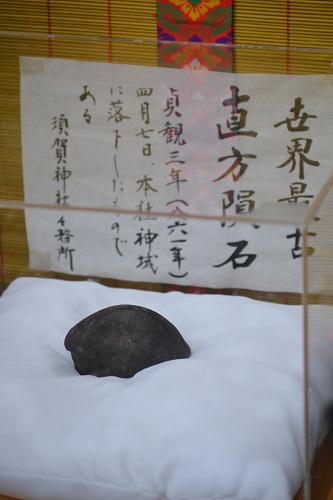 世界最古
直方隕石
貞観三年(八六一年)
四月七日本社神域
に落下したもので
ある
須賀神社々務所